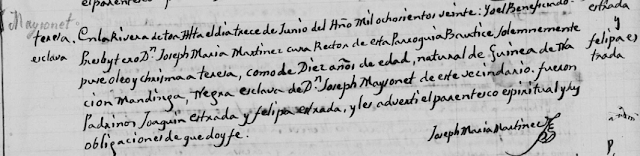 Maysonet
teresa. En la Rivera de toa Alta el dia trece de Junio del Año mil ochocientos veinte: Yo el Beneficiado
esclava Presbytero Dn. Joseph Maria Martinez cura Rector de esta Parroquia Bautice Solemnemente
puse oleo y chrisma a teresa, como de Diez años de edad, natural de Guinea de Na
cion Mandinga, Negra esclava de Dn. Joseph Maysonet de este vecindario. fueron
Padrinos Joaquin estrada y felipa estrada, y les adverti el parentesco espiritual y sus
obligaciones de que doy fe.
Joseph Maria Martinez
estrada
y
felipa es
trada